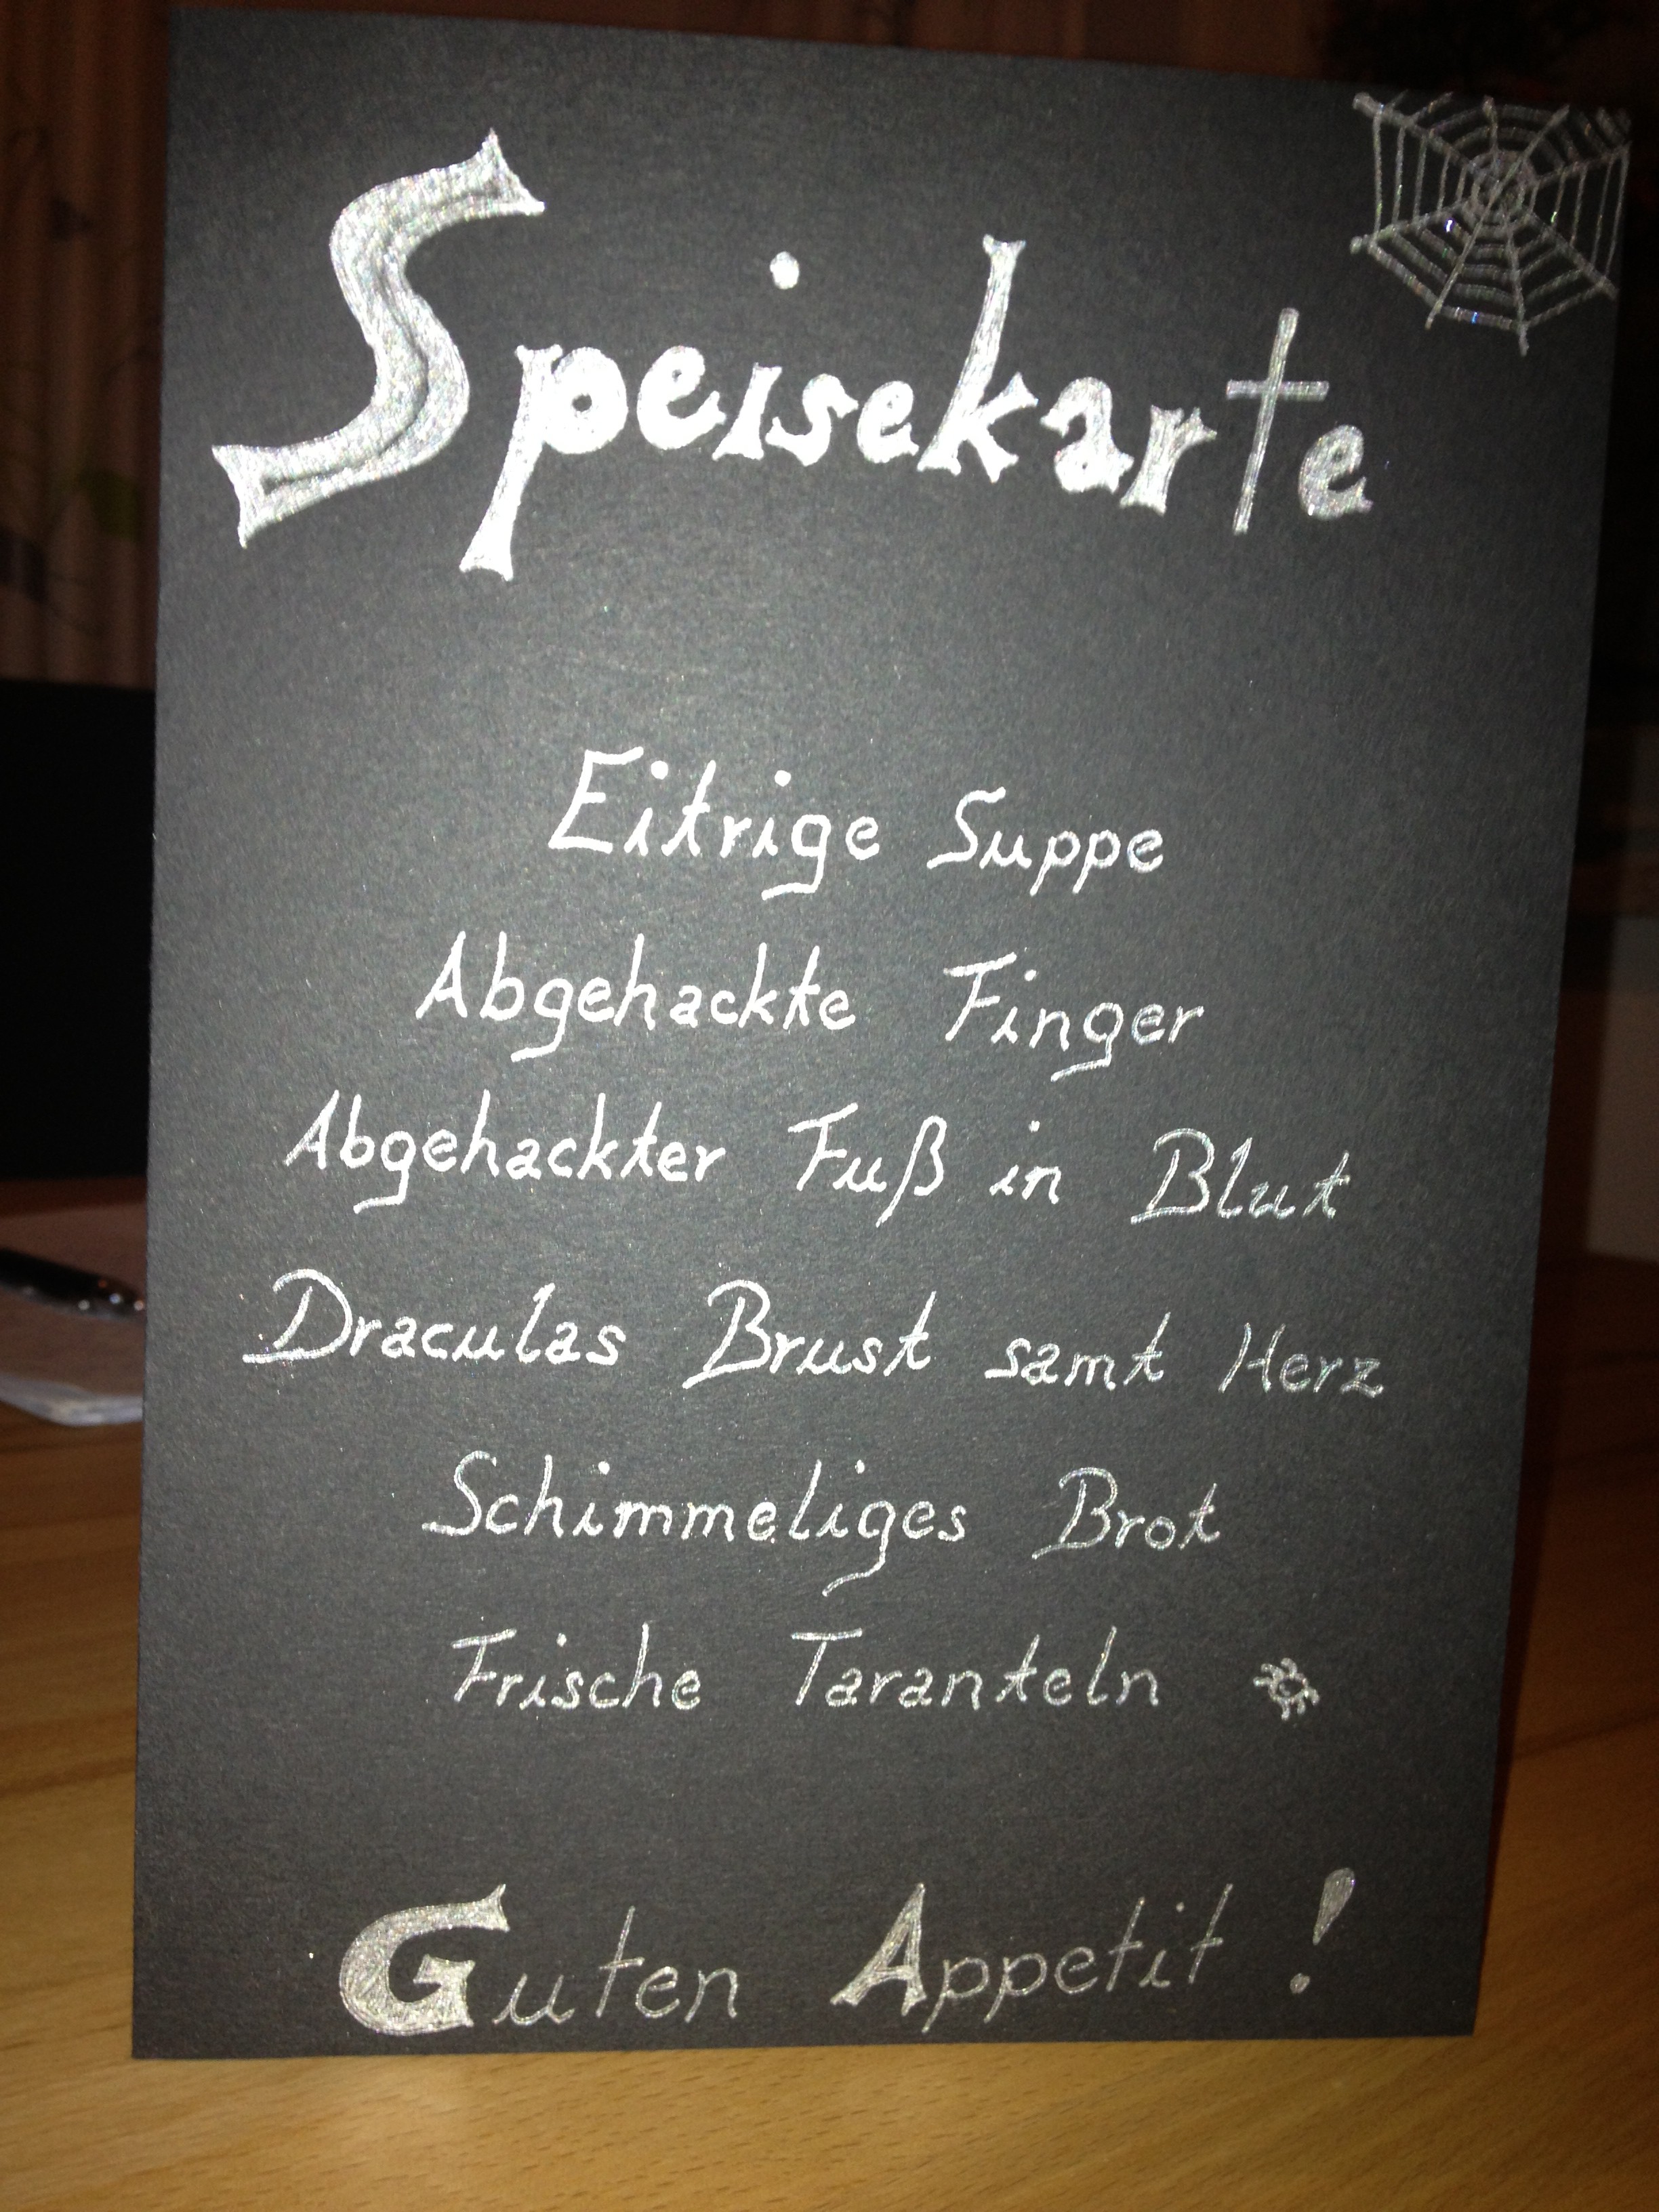 Speisekarte
Eitrige Suppe
Abgehackte Finger
Abgehackter Fuß in Blut
Draculas Brust samt Herz
Schimmeliges Brot
Frische Taranteln
Guten Appetit!